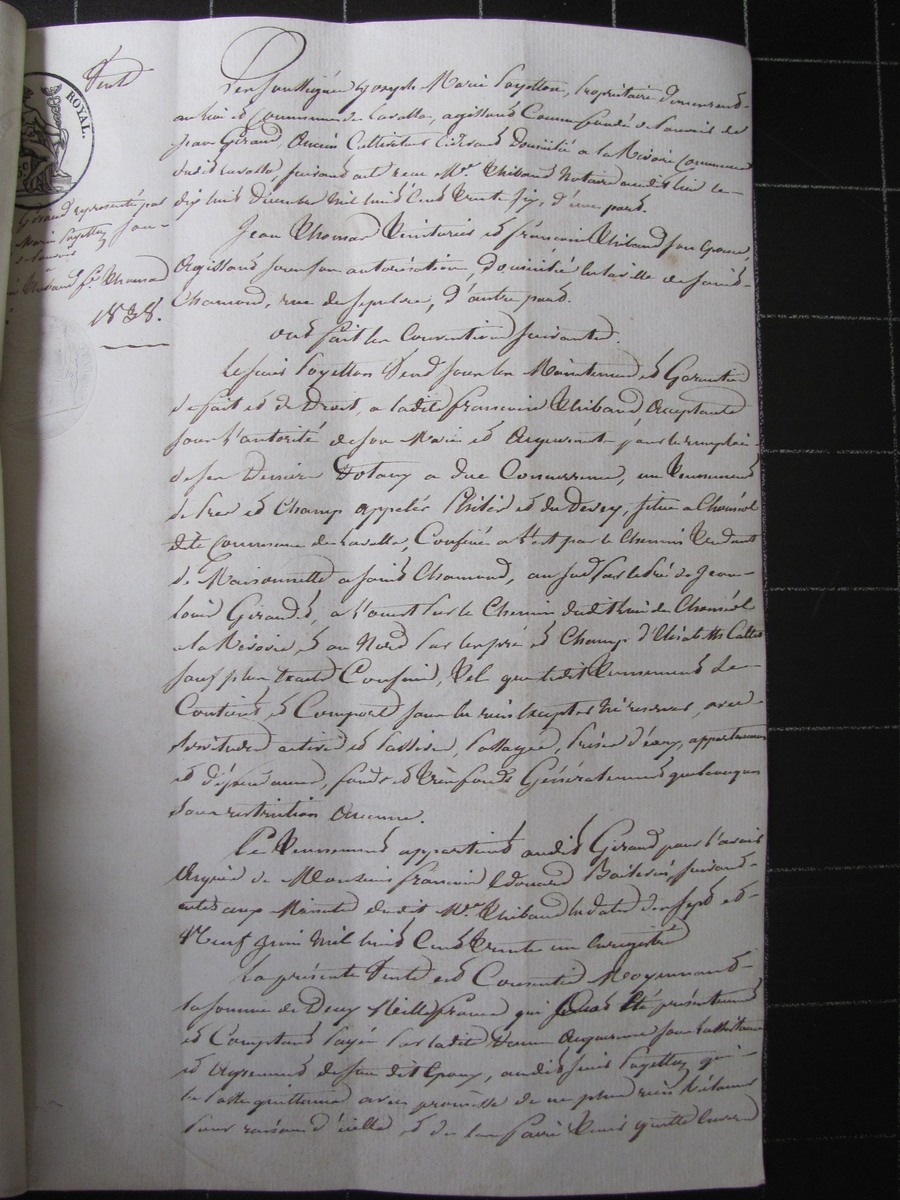 ROYAL.
Vente
Girand représenté par
Marie Payetton
1838.
Les Soussignés Joseph Marie Payetton, Propriétaire demeurant
au lieu et commune de Lavalla, agissant Comme fondé de pouvoir de
Jean Girand, Ancien Cultivateur domicilié a la Rivoire Commune
dudit Lavalla, suivant acte reçu Me. Thibaud Notaire audit lieu le
dix huit décembre mil huit Cent trente six, d'une part.
Jean Thomas Teinturier et françoise Thibaud son épouse,
Agissant sous son autorisation, domiciliés en la ville de Saint
Chamond, rue de, d'autre part.
ont fait les Conventions suivantes.
Le sieur Payetton Vend sous les Maintenues et Garanties
de fait et de Droit, a ladite françoise Thibaud, Acceptante
sous l'autorité de son Mari et Acquérante pour le remploi
de ses Deniers Dotaux a due Concurrence, un Tennement
de Pré et Champ appelés et du Devey, situé a
dite Commune de Lavalla, Confiné a l'est par le Chemin Tendant
de Maisonnette a Saint Chamond, au sud par le Pré de Jean
Louis Girand, a l'ouest par le Chemin dudit lieu de
a la Rivoire, et au Nord par les pré et Champ d'Elisabeth
sauf plus exacts Confins, Tel que ledit Tennement se
Contient et Comporte sans en rien excepter Ni réserver, avec
servitudes actives et Passives, Passages, Prises d'eau, appartenances
et dépendances, fonds et très fonds Généralement quelconques
sans restriction aucune.
Ce Tennement appartient audit Girand pour l'avoir
Acquis de Monsieur françois Edouard, suivant
actes aux Minutes dudit Me. Thibaud en date des sept et
Neuf juin Mil huit Cent trente un Enregistré
La présente Vente est Consentie Moyennant
la somme de Deux Mille francs qui a été présentement
et Comptant Payée Par ladite Dame Acquéreuse sous l'assistance
et Agrément de son dit Epoux, audit sieur Payetton qui
en Passe quittance avec promesse de ne plus rien Réclamer
Pour raison d'icelle, et de la faire Tenir quitte Envers